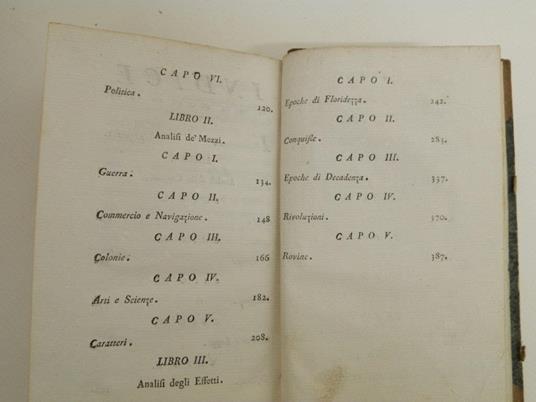 CAPO VI.
Politica. 120.
LIBRO II.
Analiſi de' Mezzi.
CAPO I.
Guerra. 134.
CAPO II.
Commercio e Navigazione. 148
CAPO III.
Colonie. 166
CAPO IV.
Arti e Scienze. 182.
CAPO V.
Caratteri. 208.
LIBRO III.
Analiſi degli Effetti.
CAPO I.
Epoche di Floridezza. 242.
CAPO II.
Conquiſte. 283.
CAPO III.
Epoche di Decadenza. 337.
CAPO IV.
Rivoluzioni. 370.
CAPO V.
Rovine. 387.